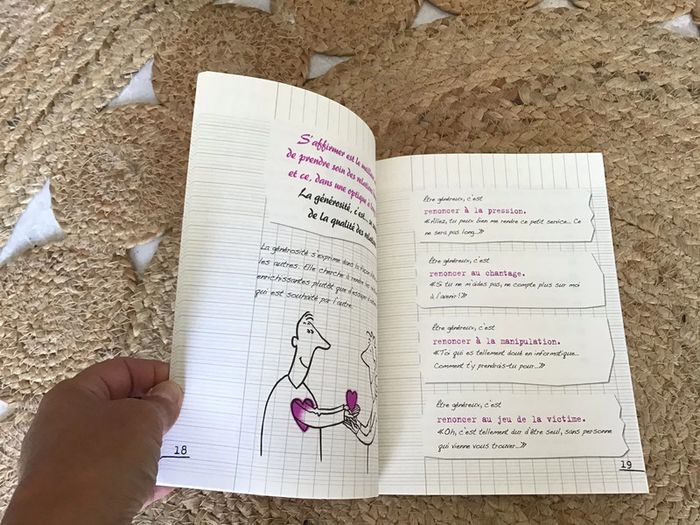 S'affirmer est la
de prendre soin des
et ce, dans une optique
La générosité, c'est...
de la qualité des
La générosité s'exprime dans la
les autres. Elle cherche à rendre les
enrichissantes plutôt que d'essayer
qui est souhaité par l'autre.
18
Être généreux, c'est
renoncer à la pression.
«Allez, tu peux bien me rendre ce petit service... Ce
ne sera pas long...»
Être généreux, c'est
renoncer au chantage.
«Si tu ne m'aides pas, ne compte plus sur moi
à l'avenir!»
Être généreux, c'est
renoncer à la manipulation.
«Toi qui es tellement doué en informatique...
Comment t'y prendrais-tu pour...»
Être généreux, c'est
renoncer au jeu de la victime.
«Oh, c'est tellement dur d'être seul, sans personne
qui vienne vous trouver...»
19